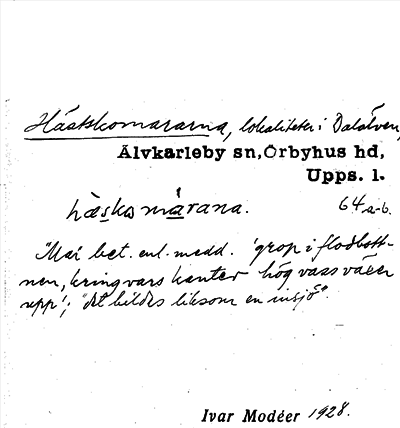 Hästskomararna, lokaliteter i Dalälven,
Älvkarleby sn, Örbyhus hd,
Upps. l.
hæsko mårana. 64 a-b.
"Mar bet. enl. medd. 'grop i flodbott-
nen, kring vars kanter hög vass växer
upp'; "det bildes liksom en insjö".
Ivar Modéer 1928.